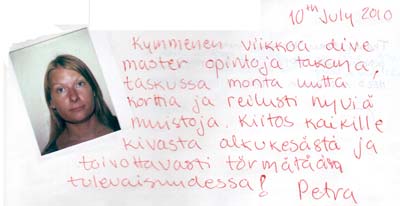 10th July 2010
Kymmenen viikkoa dive
master opintoja takana,
taskussa monta uutta
korttia ja reilusti hyviä
muistoja. Kiitos kaikille
kivasta alkukesästä ja
toivottavasti törmätään
tulevaisuudessa!
Petra